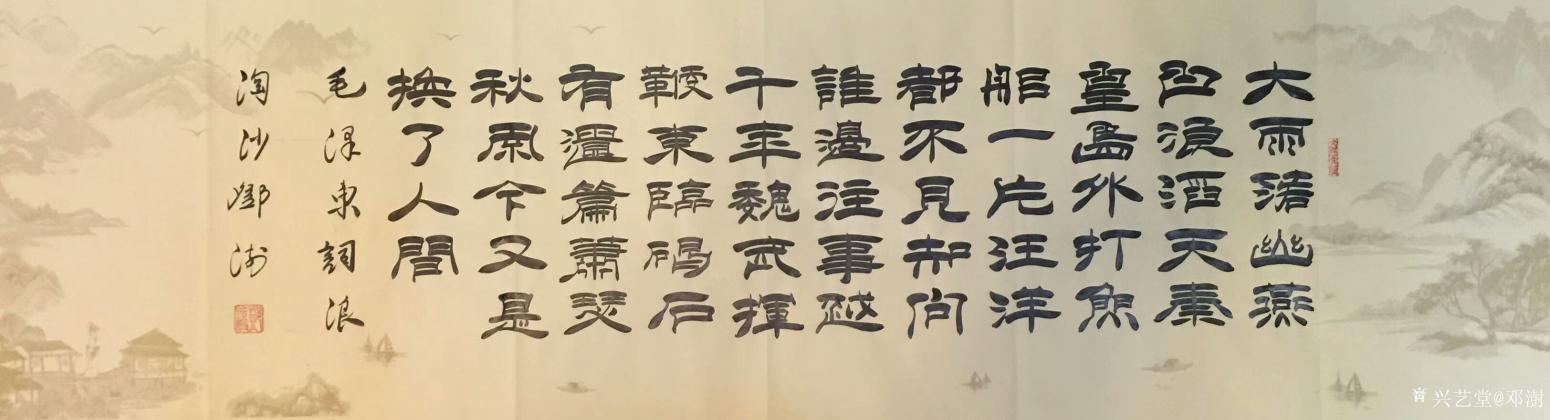 大雨落幽燕
白浪滔天秦
皇島外打魚
船一片汪洋
都不見知向
誰邊往事越
千年魏武揮
鞭東臨碣石
有遺篇蕭瑟
秋風今又是
換了人間
毛泽東詞浪
淘沙鄧澍
兴艺堂@邓澍